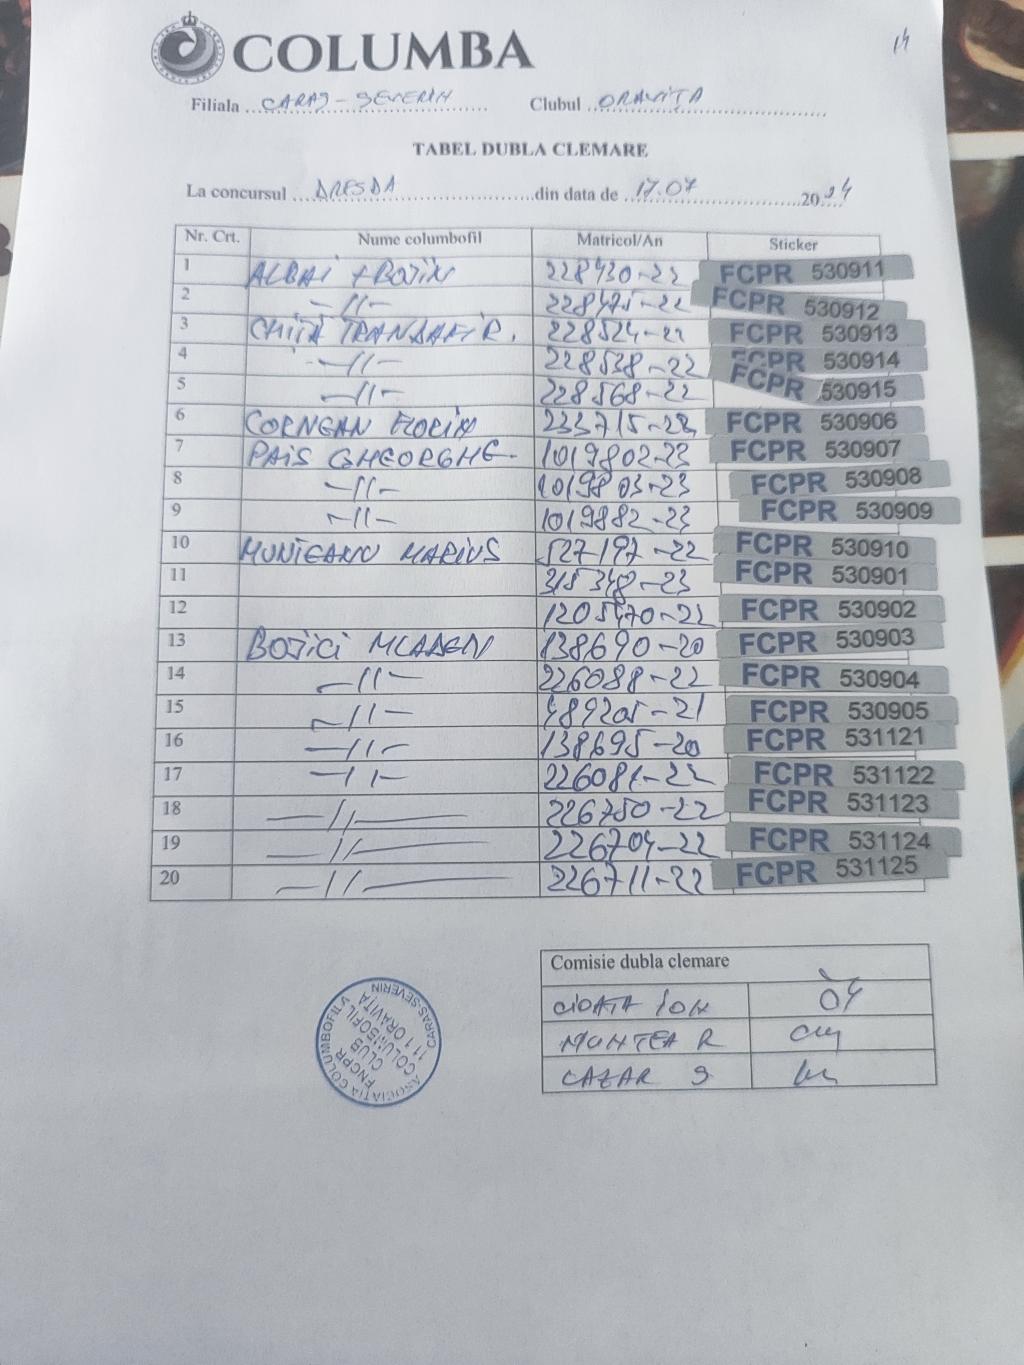 COLUMBA
14
Filiala CARAȘ - SEVERIN Clubul ORAVIȚA
TABEL DUBLA CLEMARE
La concursul DRESDA din data de 17.07 2024
Nr. Crt. Nume columbofil Matricol/An Sticker
1 ALBAI + BOJIN 228430-22 FCPR 530911
2 -//- 228475-22 FCPR 530912
3 CHIȚĂ TRANDAFIR. 228524-22 FCPR 530913
4 -//- 228538-22 FCPR 530914
5 -//- 228568-22 FCPR 530915
6 CORNEAN FLORIN 233715-23 FCPR 530906
7 PAIS GHEORGHE 1019802-23 FCPR 530907
8 -//- 1019803-23 FCPR 530908
9 -//- 1019882-23 FCPR 530909
10 MUNTEANU MARIUS 527197-22 FCPR 530910
11 315348-23 FCPR 530901
12 1205470-22 FCPR 530902
13 BOJICI MLADEN 138690-20 FCPR 530903
14 -//- 226088-22 FCPR 530904
15 -//- 489205-21 FCPR 530905
16 -//- 138695-20 FCPR 531121
17 -//- 226081-22 FCPR 531122
18 -//- 226750-22 FCPR 531123
19 -//- 226704-22 FCPR 531124
20 -//- 226711-22 FCPR 531125
Comisie dubla clemare
CIOATA ION
MUNTEA R
CAZAR S
ASOCIAȚIA COLUMBOFILA CARAȘ-SEVERIN
FNCPR
CLUB
COLUMBOFIL
111 ORAVIȚA